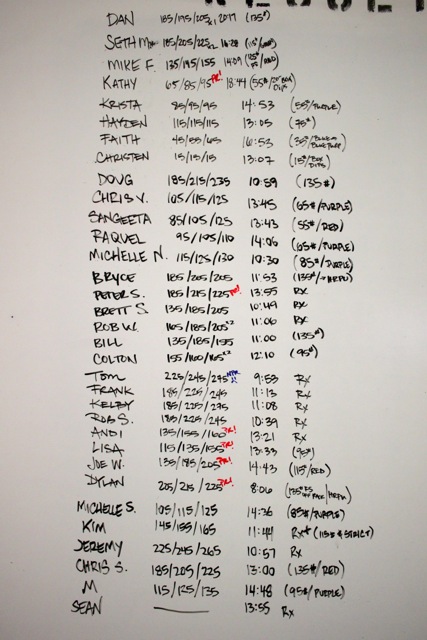 DAN 185/195/205x1 20:17 (135#)
SETH M 185/205/225x2 16:28 (115#
MIKE F. 135/145/155 14:09 /RED)
KATHY 65/85/95 PR! 18:44 (55#
KRISTA 85/95/95 14:53 (55#/PURPLE)
HAYDEN 115/115/115 13:05 (75#)
FAITH 45/55/65 16:53 (35#/
CHRISTEN 15/15/15 13:07 (15#/BOX DIPS)
DOUG 185/215/235 10:59 (135#)
CHRIS V. 105/115/125 13:45 (65#/PURPLE)
SANGEETA 85/105/125 13:43 (55#/RED)
RAQUEL 95/105/110 14:06 (65#/PURPLE)
MICHELLE N. 115/125/130 10:30 (85#/PURPLE)
BRYCE 185/205/205 11:53 (135#/
PETER S. 185/215/225 PR! 13:55 RX
BRETT S. 135/185/205 10:49 RX
ROB W. 165/185/205x2 11:06 RX
BILL 135/185/155 11:00 (135#)
COLTON 155/160/165x2 12:10 (95#)
TOM 225/245/275 9:53 RX
FRANK 185/225/245 11:13 RX
KELBY 185/225/275 11:08 RX
ROB S. 185/225/245 10:39 RX
ANDI 135/155/160 PR! 13:21 RX
LISA 115/135/155 PR! 13:33 (95#)
JOE W. 135/185/205 PR! 14:43 (115#/RED)
DYLAN 205/215/225 PR! 8:06 (135#
MICHELLE S. 105/115/125 14:36 (85#/PURPLE)
KIM 145/155/165 11:44 RX+ (115# STRICT)
JEREMY 225/245/265 10:57 RX
CHRIS S. 185/205/225 13:00 (135#/RED)
M 115/125/135 14:48 (95#/PURPLE)
SEAN 13:55 RX